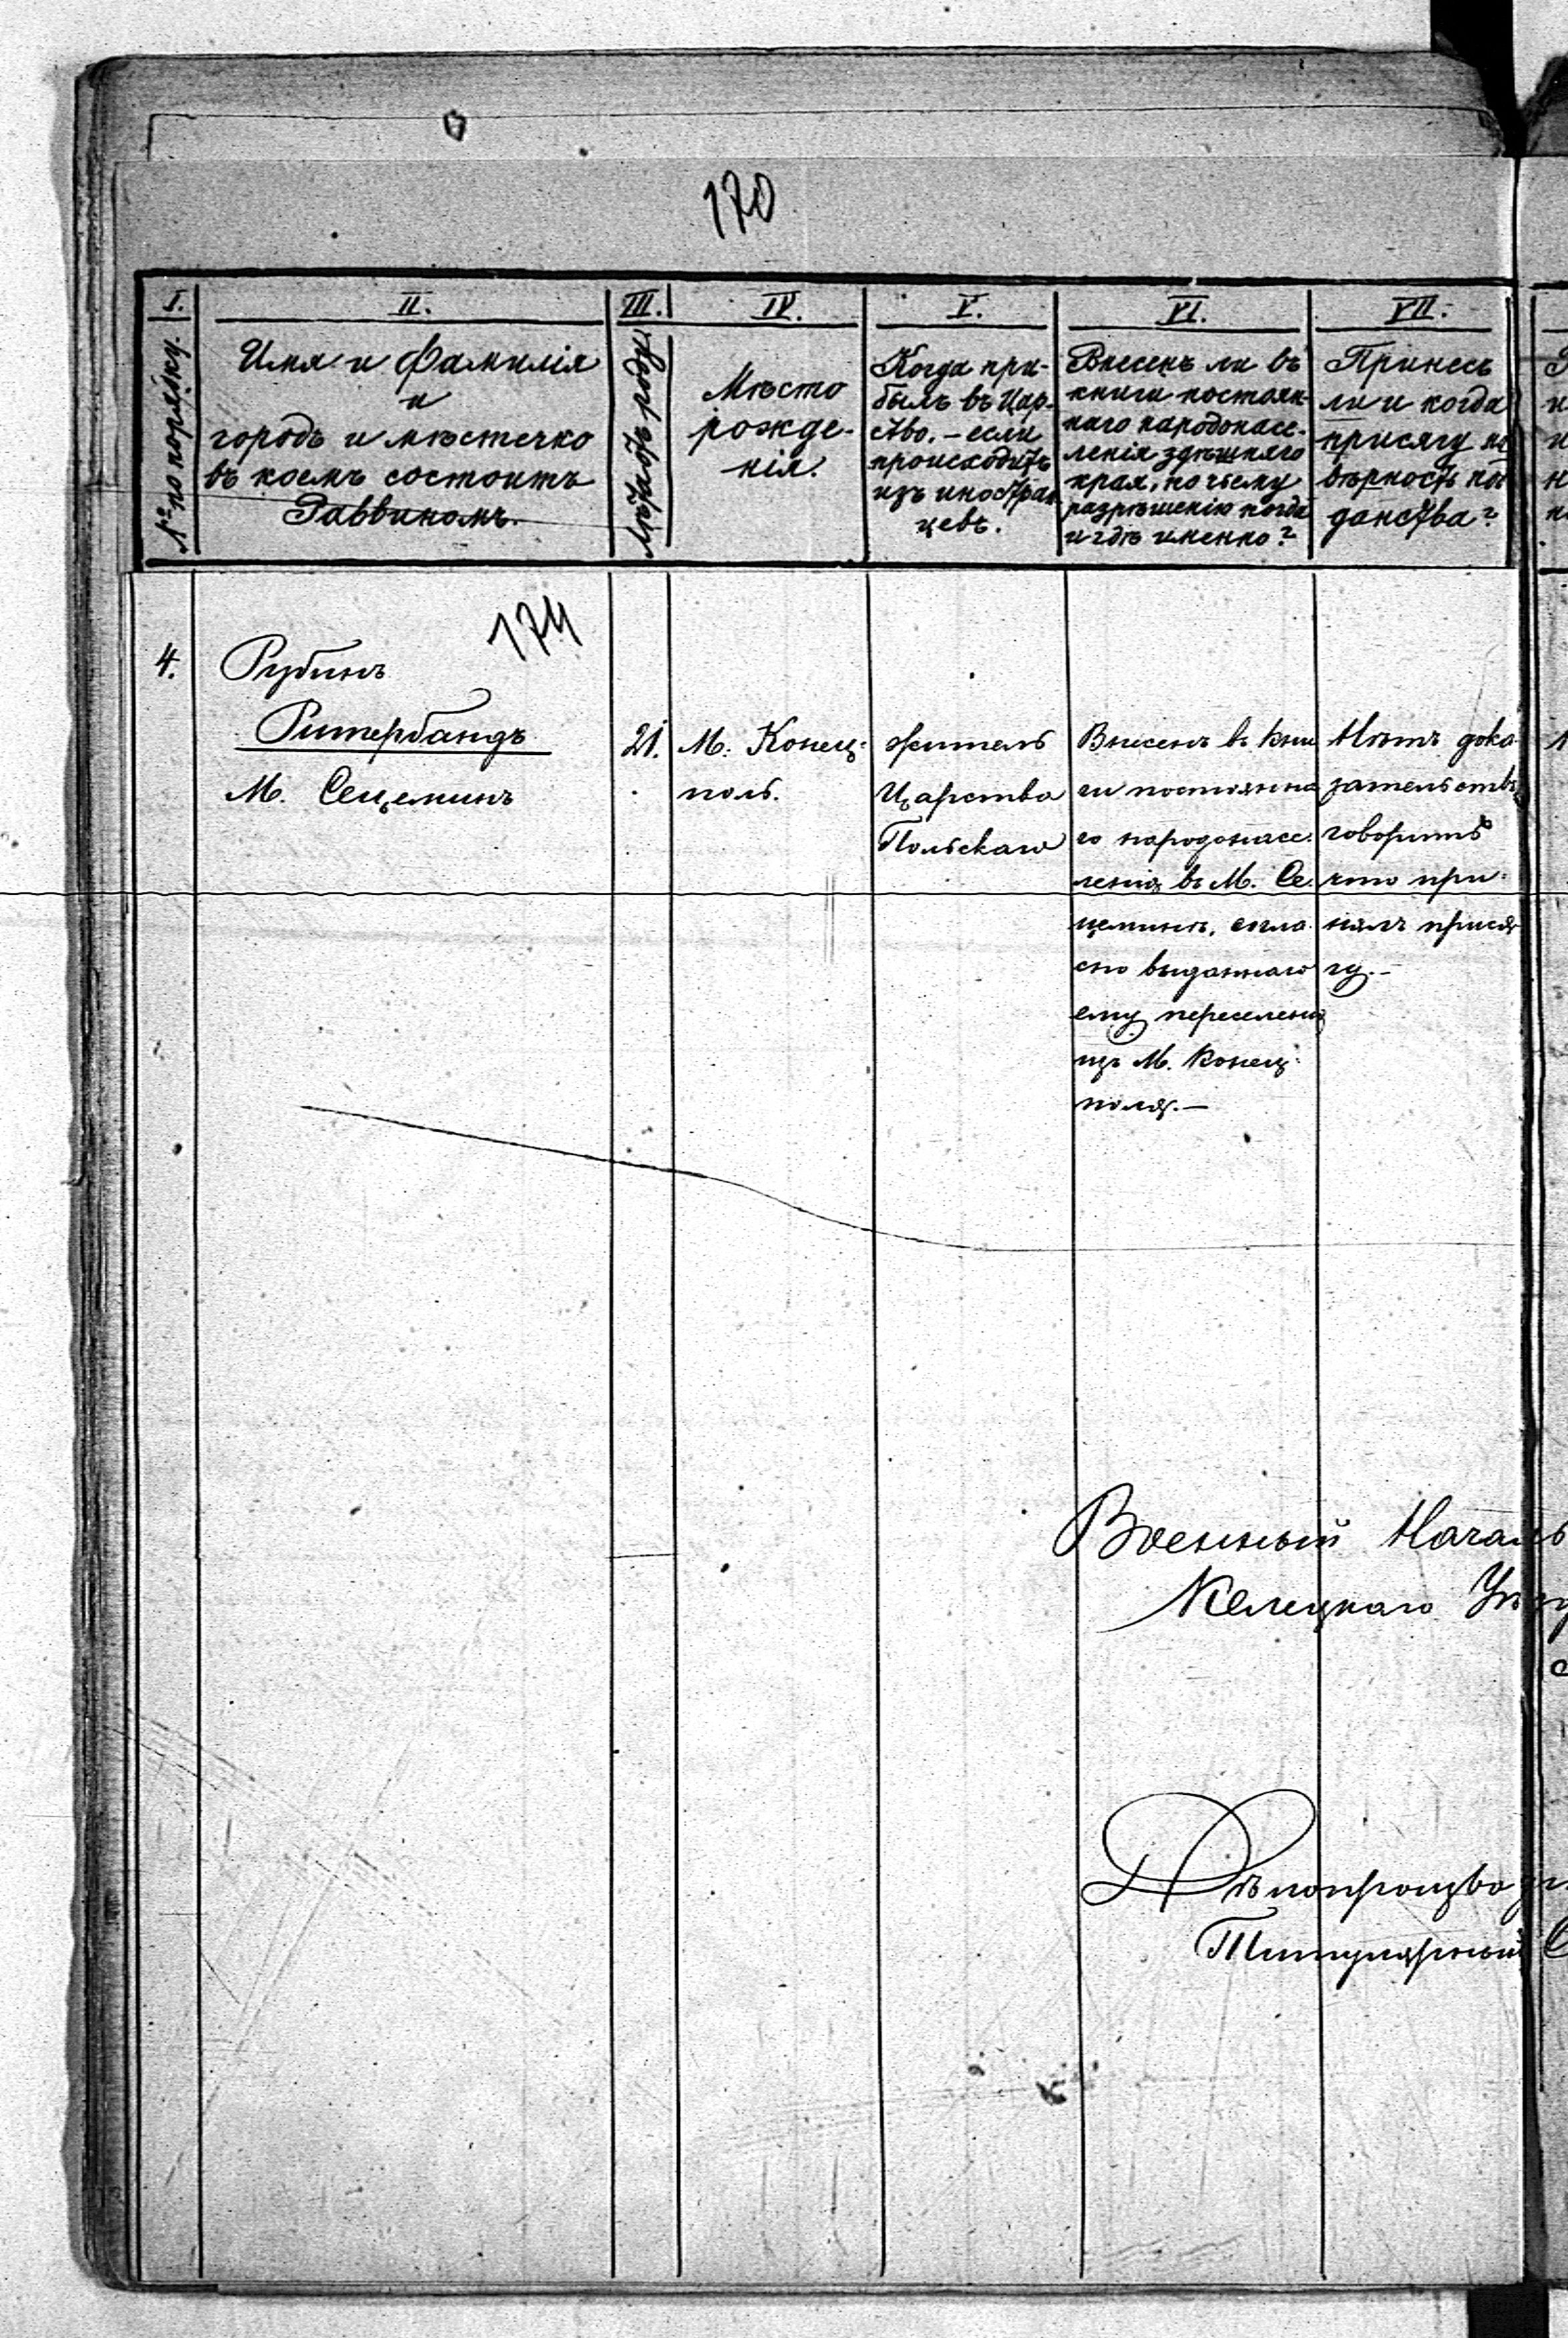 170
I.
№ по порядку.
II.
Имя и Фамилія
и
городъ и мѣстечко
въ коемъ состоитъ
Раввиномъ.
III.
Лѣтъ отъ роду
IV.
Мѣсто
рожде-
нія.
V.
Когда при-
былъ въ Цар-
ство, – если
происходитъ
изъ иностран
цевъ.
VI.
Внесенъ ли въ
книги постоян-
наго народонасе-
ленія здѣшняго
края, по чьему
разрѣшенію когда
и гдѣ именно?
VII.
Принесъ
ли и когда
присягу на
вѣрность под
данства?
174
4.
Рубинъ
Ритербандъ
М. Сецеминъ
21.
М. Конец-
поль.
житель
Царства
Польскаго
Внесенъ въ кни
ги постоянна
го народонасе-
ленія въ М. Се-
цеминѣ, согла
сно выданнаго
ему переселенія
изъ М. Конец-
поля. –
Нѣтъ дока-
зательствъ,
говоритъ
что при-
нялъ прися
гу. –
Военный Началь
Келецкаго Уѣзд
Дѣлопроизводи
Титулярный С